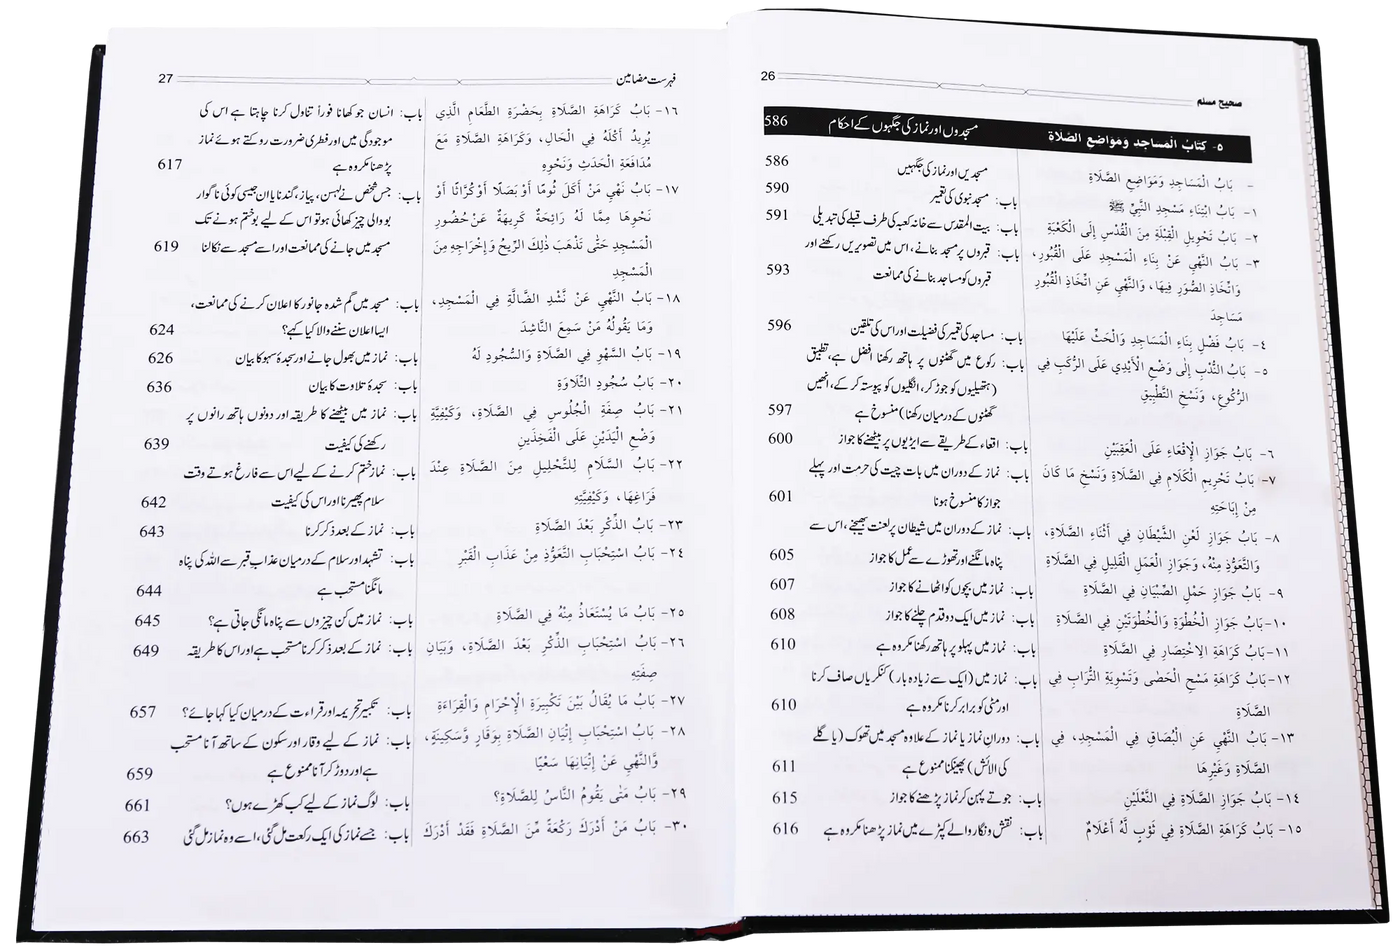 صحیح مسلم
26
٥- كتابُ الْمساجِد ومَواضِعِ الصَّلاة مسجدوں اور نماز کی جگہوں کے احکام 586
- بَابُ الْمَسَاجِدِ وَمَوَاضِعِ الصَّلَاةِ مسجدیں اور نماز کی جگہیں 586
١- بَابُ ابْتِنَاءِ مَسْجِدِ النَّبِيِّ ﷺ باب: مسجد نبوی کی تعمیر 590
٢- بَابُ تَحْوِيلِ الْقِبْلَةِ مِنَ الْقُدْسِ إِلَى الْكَعْبَةِ باب: بیت المقدس سے خانہ کعبہ کی طرف قبلے کی تبدیلی 591
٣- بَابُ النَّهْيِ عَنْ بِنَاءِ الْمَسْجِدِ عَلَى الْقُبُورِ، باب: قبروں پر مسجد بنانے، اس میں تصویریں رکھنے اور
وَاتِّخَاذِ الصُّوَرِ فِيهَا، وَالنَّهْيِ عَنِ اتِّخَاذِ الْقُبُورِ قبروں کو مساجد بنانے کی ممانعت 593
مَسَاجِدَ
٤- بَابُ فَضْلِ بِنَاءِ الْمَسَاجِدِ وَالْحَثِّ عَلَيْهَا باب: مساجد کی تعمیر کی فضیلت اور اس کی تلقین 596
٥- بَابُ النَّدْبِ إِلَى وَضْعِ الْأَيْدِي عَلَى الرُّكَبِ فِي باب: رکوع میں گھٹنوں پر ہاتھ رکھنا افضل ہے، تطبیق
الرُّكُوعِ، وَنَسْخِ التَّطْبِيقِ (ہتھیلیوں کو جوڑ کر، انگلیوں کو پیوستہ کر کے، انھیں
گھٹنوں کے درمیان رکھنا) منسوخ ہے 597
٦- بَابُ جَوَازِ الْإِقْعَاءِ عَلَى الْعَقِبَيْنِ باب: اقعاء کے طریقے سے ایڑیوں پر بیٹھنے کا جواز 600
٧- بَابُ تَحْرِيمِ الْكَلَامِ فِي الصَّلَاةِ وَنَسْخِ مَا كَانَ باب: نماز کے دوران میں بات چیت کی حرمت اور پہلے
مِنْ إِبَاحَتِهِ جواز کا منسوخ ہونا 601
٨- بَابُ جَوَازِ لَعْنِ الشَّيْطَانِ فِي أَثْنَاءِ الصَّلَاةِ، باب: نماز کے دوران میں شیطان پر لعنت بھیجنے، اس سے
وَالتَّعَوُّذِ مِنْهُ، وَجَوَازِ الْعَمَلِ الْقَلِيلِ فِي الصَّلَاةِ پناہ مانگنے اور تھوڑے سے عمل کا جواز 605
٩- بَابُ جَوَازِ حَمْلِ الصِّبْيَانِ فِي الصَّلَاةِ باب: نماز میں بچوں کو اٹھانے کا جواز 607
١٠- بَابُ جَوَازِ الْخُطْوَةِ وَالْخُطْوَتَيْنِ فِي الصَّلَاةِ باب: نماز میں ایک دو قدم چلنے کا جواز 608
١١- بَابُ كَرَاهَةِ الِاخْتِصَارِ فِي الصَّلَاةِ باب: نماز میں پہلو پر ہاتھ رکھنا مکروہ ہے 610
١٢- بَابُ كَرَاهَةِ مَسْحِ الْحَصَى وَتَسْوِيَةِ التُّرَابِ فِي باب: نماز میں (ایک سے زیادہ بار) کنکریاں صاف کرنا
الصَّلَاةِ اور مٹی کو برابر کرنا مکروہ ہے 610
١٣- بَابُ النَّهْيِ عَنِ الْبُصَاقِ فِي الْمَسْجِدِ، فِي باب: دوران نماز یا نماز کے علاوہ مسجد میں تھوک (یا گلے
الصَّلَاةِ وَغَيْرِهَا کی الائش) پھینکنا ممنوع ہے 611
١٤- بَابُ جَوَازِ الصَّلَاةِ فِي النَّعْلَيْنِ باب: جوتے پہن کر نماز پڑھنے کا جواز 615
١٥- بَابُ كَرَاهَةِ الصَّلَاةِ فِي ثَوْبٍ لَهُ أَعْلَامٌ باب: نقش و نگار والے کپڑے میں نماز پڑھنا مکروہ ہے 616
فہرست مضامین
27
١٦- بَابُ كَرَاهَةِ الصَّلَاةِ بِحَضْرَةِ الطَّعَامِ الَّذِي باب: انسان جو کھانا فوراً تناول کرنا چاہتا ہے اس کی
يُرِيدُ أَكْلَهُ فِي الْحَالِ، وَكَرَاهَةِ الصَّلَاةِ مَعَ موجودگی میں اور فطری ضرورت روکتے ہوئے نماز
مُدَافَعَةِ الْحَدَثِ وَنَحْوِهِ پڑھنا مکروہ ہے 617
١٧- بَابُ نَهْيِ مَنْ أَكَلَ ثُومًا أَوْ بَصَلًا أَوْ كُرَّاثًا أَوْ باب: جس شخص نے لہسن، پیاز، گندنا یا ان جیسی کوئی ناگوار
نَحْوِهَا مِمَّا لَهُ رَائِحَةٌ كَرِيهَةٌ عَنْ حُضُورِ بو والی چیز کھائی ہو تو اس کے لیے بو ختم ہونے تک
الْمَسْجِدِ حَتَّى تَذْهَبَ ذٰلِكَ الرِّيحُ وَإِخْرَاجِهِ مِنَ مسجد میں جانے کی ممانعت اور اسے مسجد سے نکالنا 619
الْمَسْجِدِ
١٨- بَابُ النَّهْيِ عَنْ نَّشْدِ الضَّالَّةِ فِي الْمَسْجِدِ، باب: مسجد میں گم شدہ جانور کا اعلان کرنے کی ممانعت،
وَمَا يَقُولُهُ مَنْ سَمِعَ النَّاشِدَ ایسا اعلان سننے والا کیا کہے؟ 624
١٩- بَابُ السَّهْوِ فِي الصَّلَاةِ وَالسُّجُودِ لَهُ باب: نماز میں بھول جانے اور سجدۂ سہو کا بیان 626
٢٠- بَابُ سُجُودِ التِّلَاوَةِ باب: سجدۂ تلاوت کا بیان 636
٢١- بَابُ صِفَةِ الْجُلُوسِ فِي الصَّلَاةِ، وَكَيْفِيَّةِ باب: نماز میں بیٹھنے کا طریقہ اور دونوں ہاتھ رانوں پر
وَضْعِ الْيَدَيْنِ عَلَى الْفَخِذَيْنِ رکھنے کی کیفیت 639
٢٢- بَابُ السَّلَامِ لِلتَّحْلِيلِ مِنَ الصَّلَاةِ عِنْدَ باب: نماز ختم کرنے کے لیے اس سے فارغ ہوتے وقت
فَرَاغِهَا، وَكَيْفِيَّتِهِ سلام پھیرنا اور اس کی کیفیت 642
٢٣- بَابُ الذِّكْرِ بَعْدَ الصَّلَاةِ باب: نماز کے بعد ذکر کرنا 643
٢٤- بَابُ اسْتِحْبَابِ التَّعَوُّذِ مِنْ عَذَابِ الْقَبْرِ باب: تشہد اور سلام کے درمیان عذاب قبر سے اللہ کی پناہ
مانگنا مستحب ہے 644
٢٥- بَابُ مَا يُسْتَعَاذُ مِنْهُ فِي الصَّلَاةِ باب: نماز میں کن چیزوں سے پناہ مانگی جاتی ہے؟ 645
٢٦- بَابُ اسْتِحْبَابِ الذِّكْرِ بَعْدَ الصَّلَاةِ، وَبَيَانِ باب: نماز کے بعد ذکر کرنا مستحب ہے اور اس کا طریقہ 649
صِفَتِهِ
٢٧- بَابُ مَا يُقَالُ بَيْنَ تَكْبِيرَةِ الْإِحْرَامِ وَالْقِرَاءَةِ باب: تکبیر تحریمہ اور قراءت کے درمیان کیا کہا جائے؟ 657
٢٨- بَابُ اسْتِحْبَابِ إِتْيَانِ الصَّلَاةِ بِوَقَارٍ وَّسَكِينَةٍ، باب: نماز کے لیے وقار اور سکون کے ساتھ آنا مستحب
وَّالنَّهْيِ عَنْ إِتْيَانِهَا سَعْيًا ہے اور دوڑ کر آنا ممنوع ہے 659
٢٩- بَابُ مَتَى يَقُومُ النَّاسُ لِلصَّلَاةِ؟ باب: لوگ نماز کے لیے کب کھڑے ہوں؟ 661
٣٠- بَابُ مَنْ أَدْرَكَ رَكْعَةً مِّنَ الصَّلَاةِ فَقَدْ أَدْرَكَ باب: جسے نماز کی ایک رکعت مل گئی، اسے وہ نماز مل گئی 663